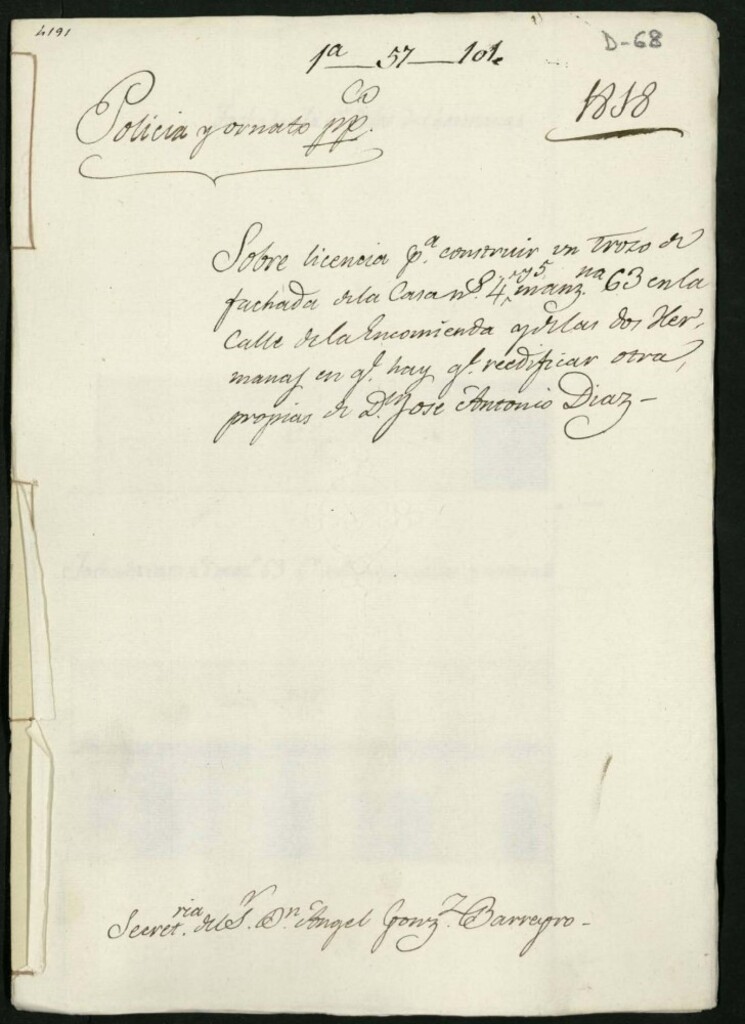 4191
D-68
1ª 57 101.
1818
Policia y ornato pp.co
Sobre licencia p.ª construir un trozo de
fachada de la Casa n.º 4, y 5 manz.na 63 en la
Calle de la Encomienda y de las dos Her,
manas en q.e hay q.e reedificar otra,
propias de D.n Jose Antonio Diaz -
Secret.ria del S.r D.n Angel Gonz.z Barreyro -